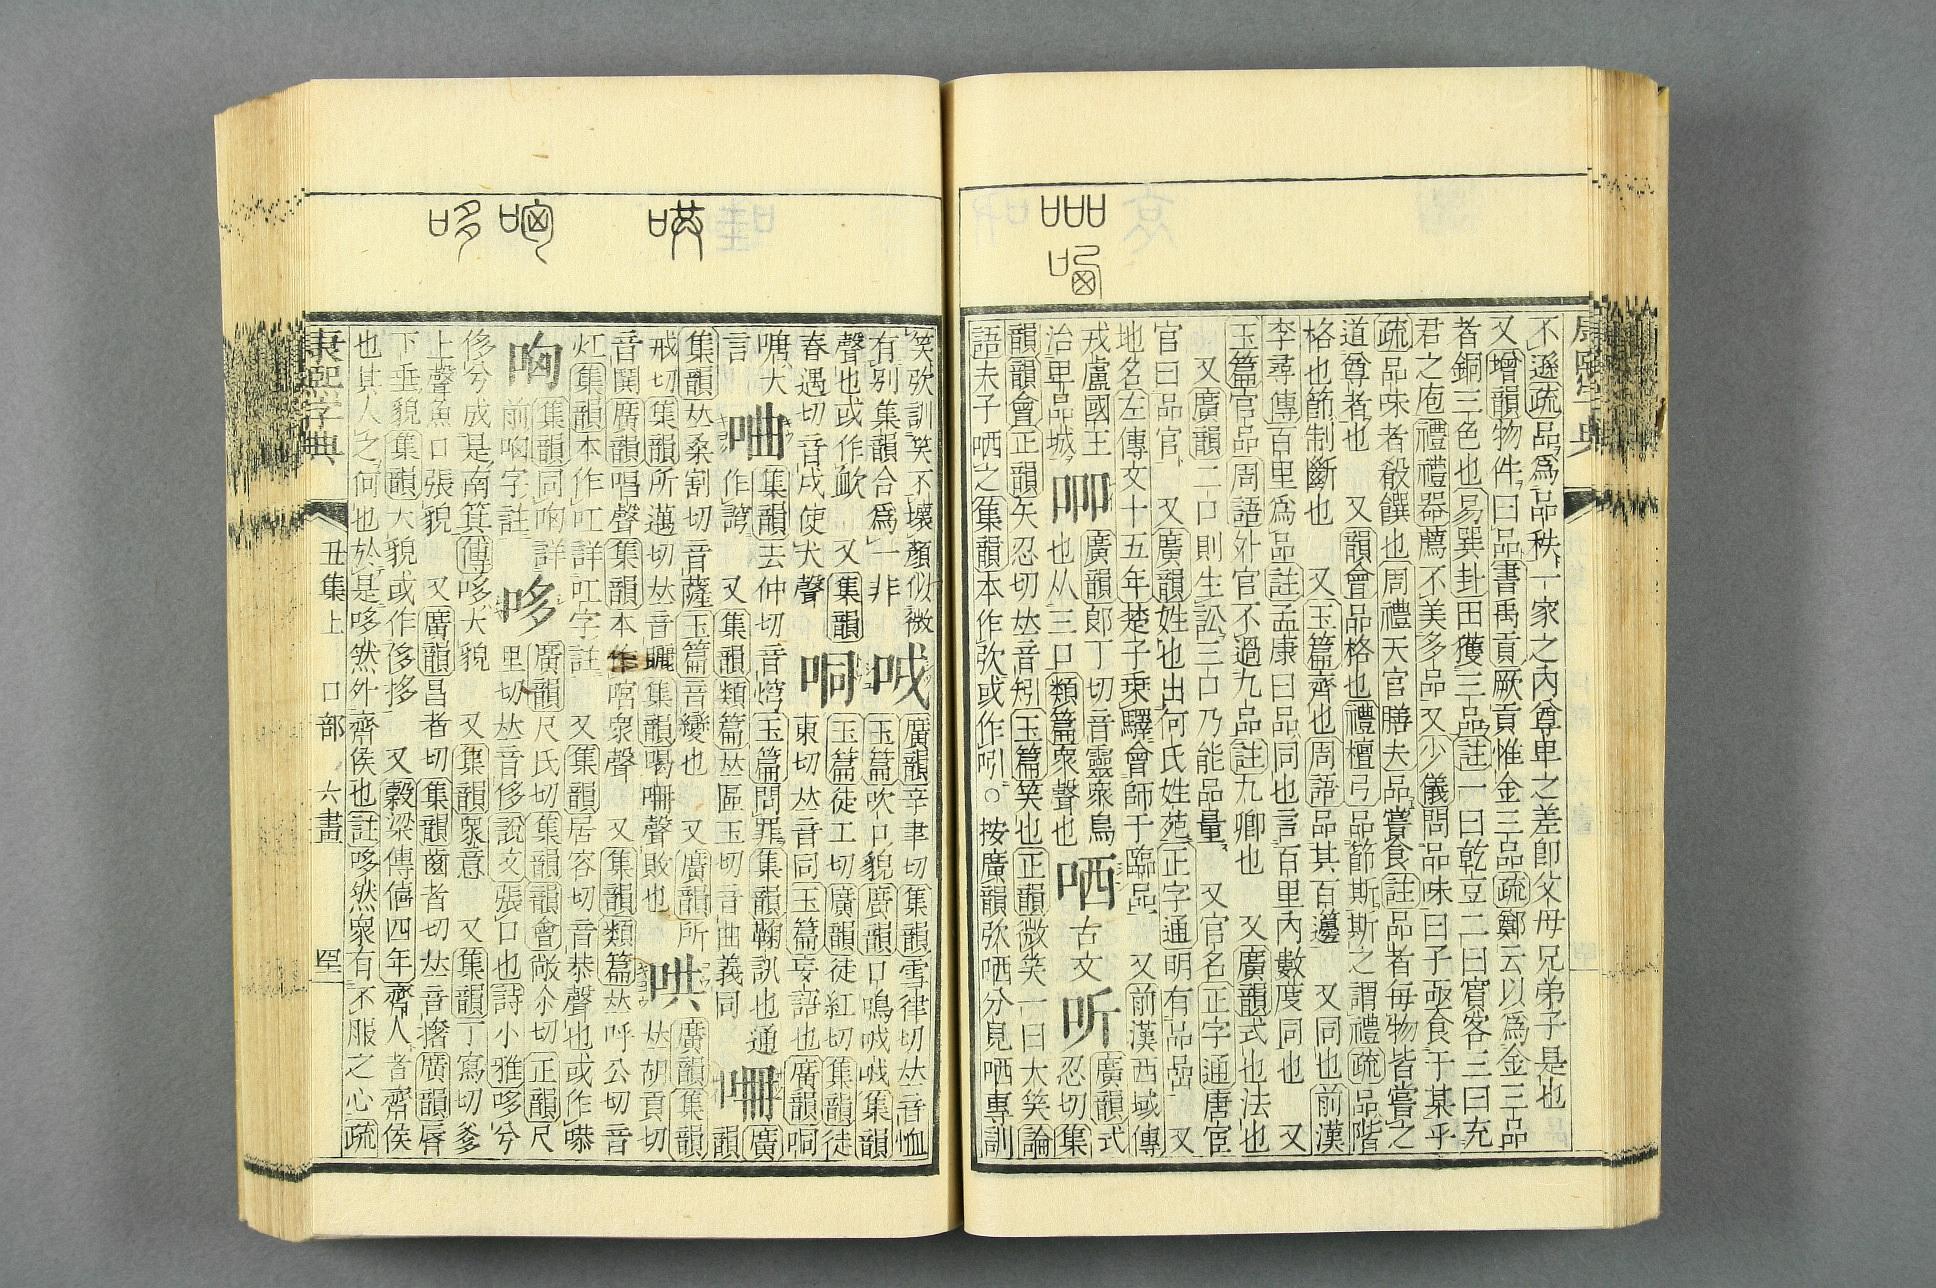 不遜疏品爲品秩一家之內尊卑之差卽父母兄弟子是也
又增韻物件曰品書禹貢厥貢惟金三品疏鄭云以爲金三品
者銅三色也易巽卦田獲三品註一曰乾豆二曰賓客三曰充
君之庖禮禮器薦不美多品又少儀問品味曰子亟食于某乎
疏品味者殽饌也周禮天官膳夫品嘗食註品者每物皆嘗之
道尊者也 又韻會品格也禮檀弓品節斯斯之謂禮疏品階
格也節制斷也 又玉篇齊也周語品其百籩 又同也前漢
李尋傳百里爲品註孟康曰品同也言百里內數度同也 又
玉篇官品周語外官不過九品註九卿也 又廣韻式也法也
又廣韻二口則生訟三口乃能品量 又官名正字通唐宦
官曰品官 又廣韻姓也出何氏姓苑正字通明有品品 又
地名左傳文十五年楚子乘驛會師于臨品 又前漢西域傳
戎盧國王治卑品城
㗊 廣韻郎丁切音靈衆鳥也从三口類篇衆聲也
哂 古文 听 廣韻式忍切集
韻韻會正韻矢忍切𠀤音矧玉篇笑也正韻微笑一曰大笑論
語夫子哂之集韻本作弞或作吲○按廣韻弞哂分見哂專訓
笑弞訓笑不壞顏似微有別集韻合爲一非
㖅 廣韻辛聿切集韻雪律切𠀤音恤
玉篇吹口貌廣韻口鳴㖅㖅集韻聲也或作歘 又集韻
春遇切音戍使犬聲
哃 玉篇徒工切廣韻徒紅切集韻徒東切𠀤音同玉篇妄語也廣韻哃
嘡大言
𠹛 集韻去仲切音焪玉篇問罪集韻鞫訊也通作誇 又集韻類篇𠀤區玉切音曲義同
㗊 廣韻
集韻𠀤桑割切音薩玉篇音變也 又廣韻所
戒切集韻所邁切𠀤音曬集韻喝㗊聲敗也
哄 廣韻集韻𠀤胡貢切
音鬨廣韻唱聲集韻本作嗊衆聲 又集韻類篇𠀤呼公切音
灴集韻本作叿詳叿字註 又集韻居容切音恭聲也或作㳟
哅 集韻同哅詳前哅字註
哆 廣韻尺氏切集韻韻會敞尒切正韻尺里切𠀤音侈說文張口也詩小雅哆兮
侈兮成是南箕傳哆大貌 又集韻衆意 又集韻丁寫切爹
上聲魚口張貌 又廣韻昌者切集韻齒者切𠀤音撦廣韻脣
下垂貌集韻大貌或作侈拸 又穀梁傳僖四年齊人者齊侯
也其人之何也於是哆然外齊侯也註哆然衆有不服之心疏
康熙字典
丑集上
口部
六畫